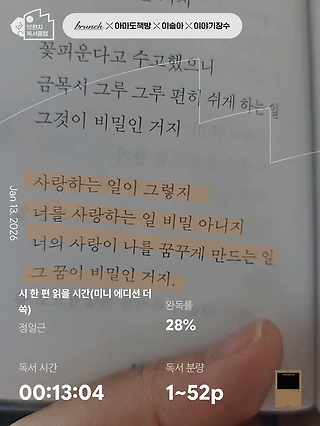 브런치
독서클럽
brunch × 아마도책방 × 이슬아 × 이야기장수
꽃피운다고 수고했으니
금목서 그루 그루 편히 쉬게 하는 일
그것이 비밀인 거지
사랑하는 일이 그렇지
너를 사랑하는 일 비밀 아니지
너의 사랑이 나를 꿈꾸게 만드는 일
그 꿈이 비밀인 거지.
Jan 13, 2026
시 한 편 읽을 시간(미니 에디션 더
쏙)
정일근
완독률
28%
독서 시간
00:13:04
독서 분량
1~52p